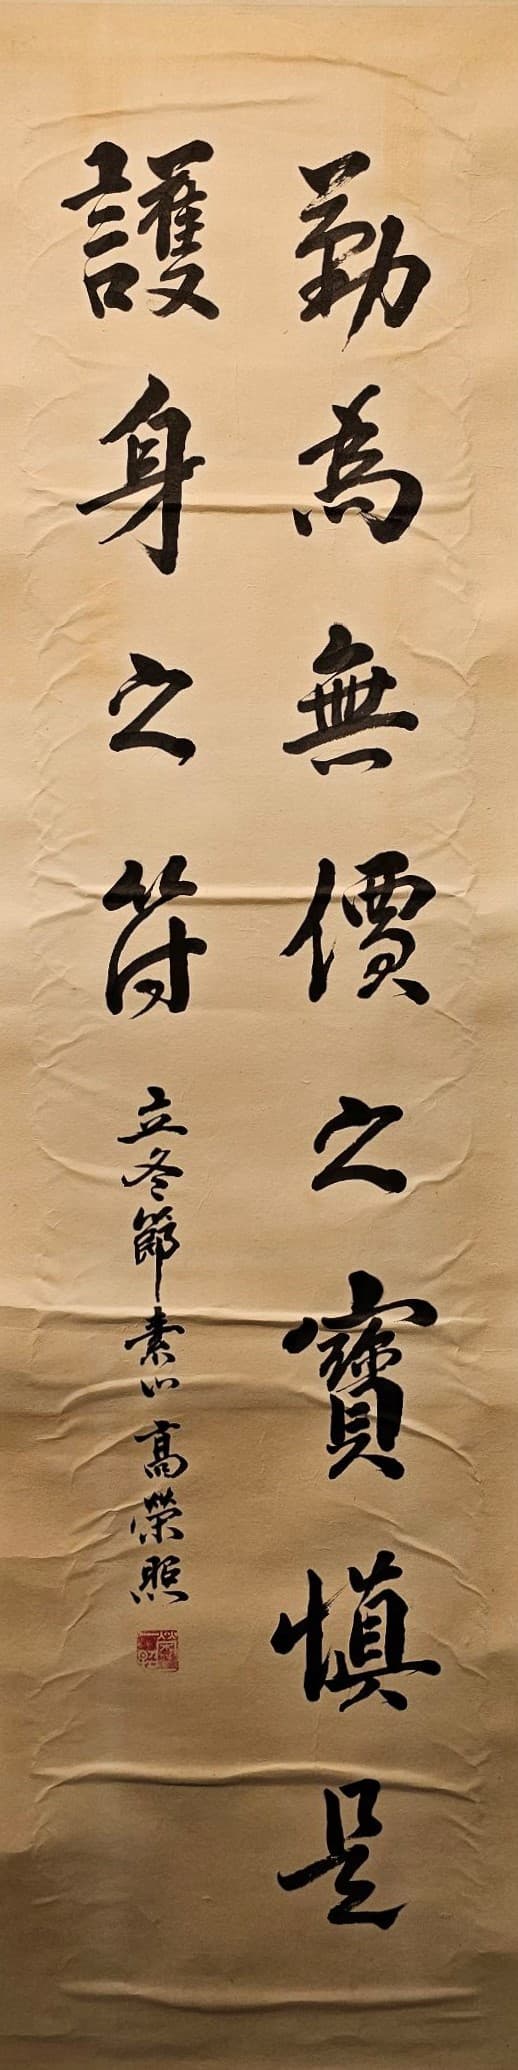 勤為無價之寶慎是
護身之符
立冬節素心高榮照